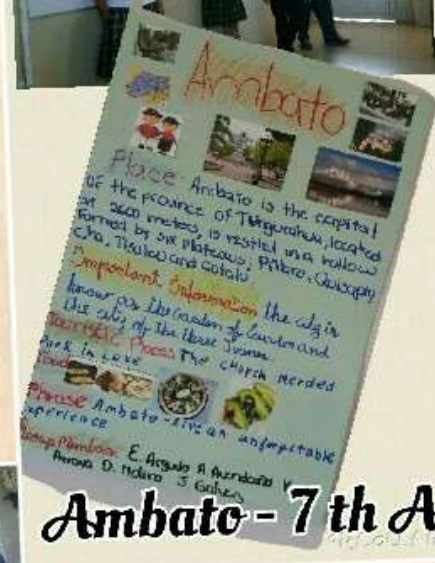 Ambato
Place: Ambato is the capital
of the province of Tungurahua, located
at 2600 meters, is nestled in a hollow
formed by six Plateaus: Pillaro, Quisapin
cha, Tisaleo and
Important Information the city is
know as the Garden of and
the city of the three Juanes
Touristic Places The church Merded
Park in Lake
Food:
Phrase Ambato - live an unforgettable
experience
Group Members: E. A. Avendaño
Arroyo D. J.
Ambato - 7 th A